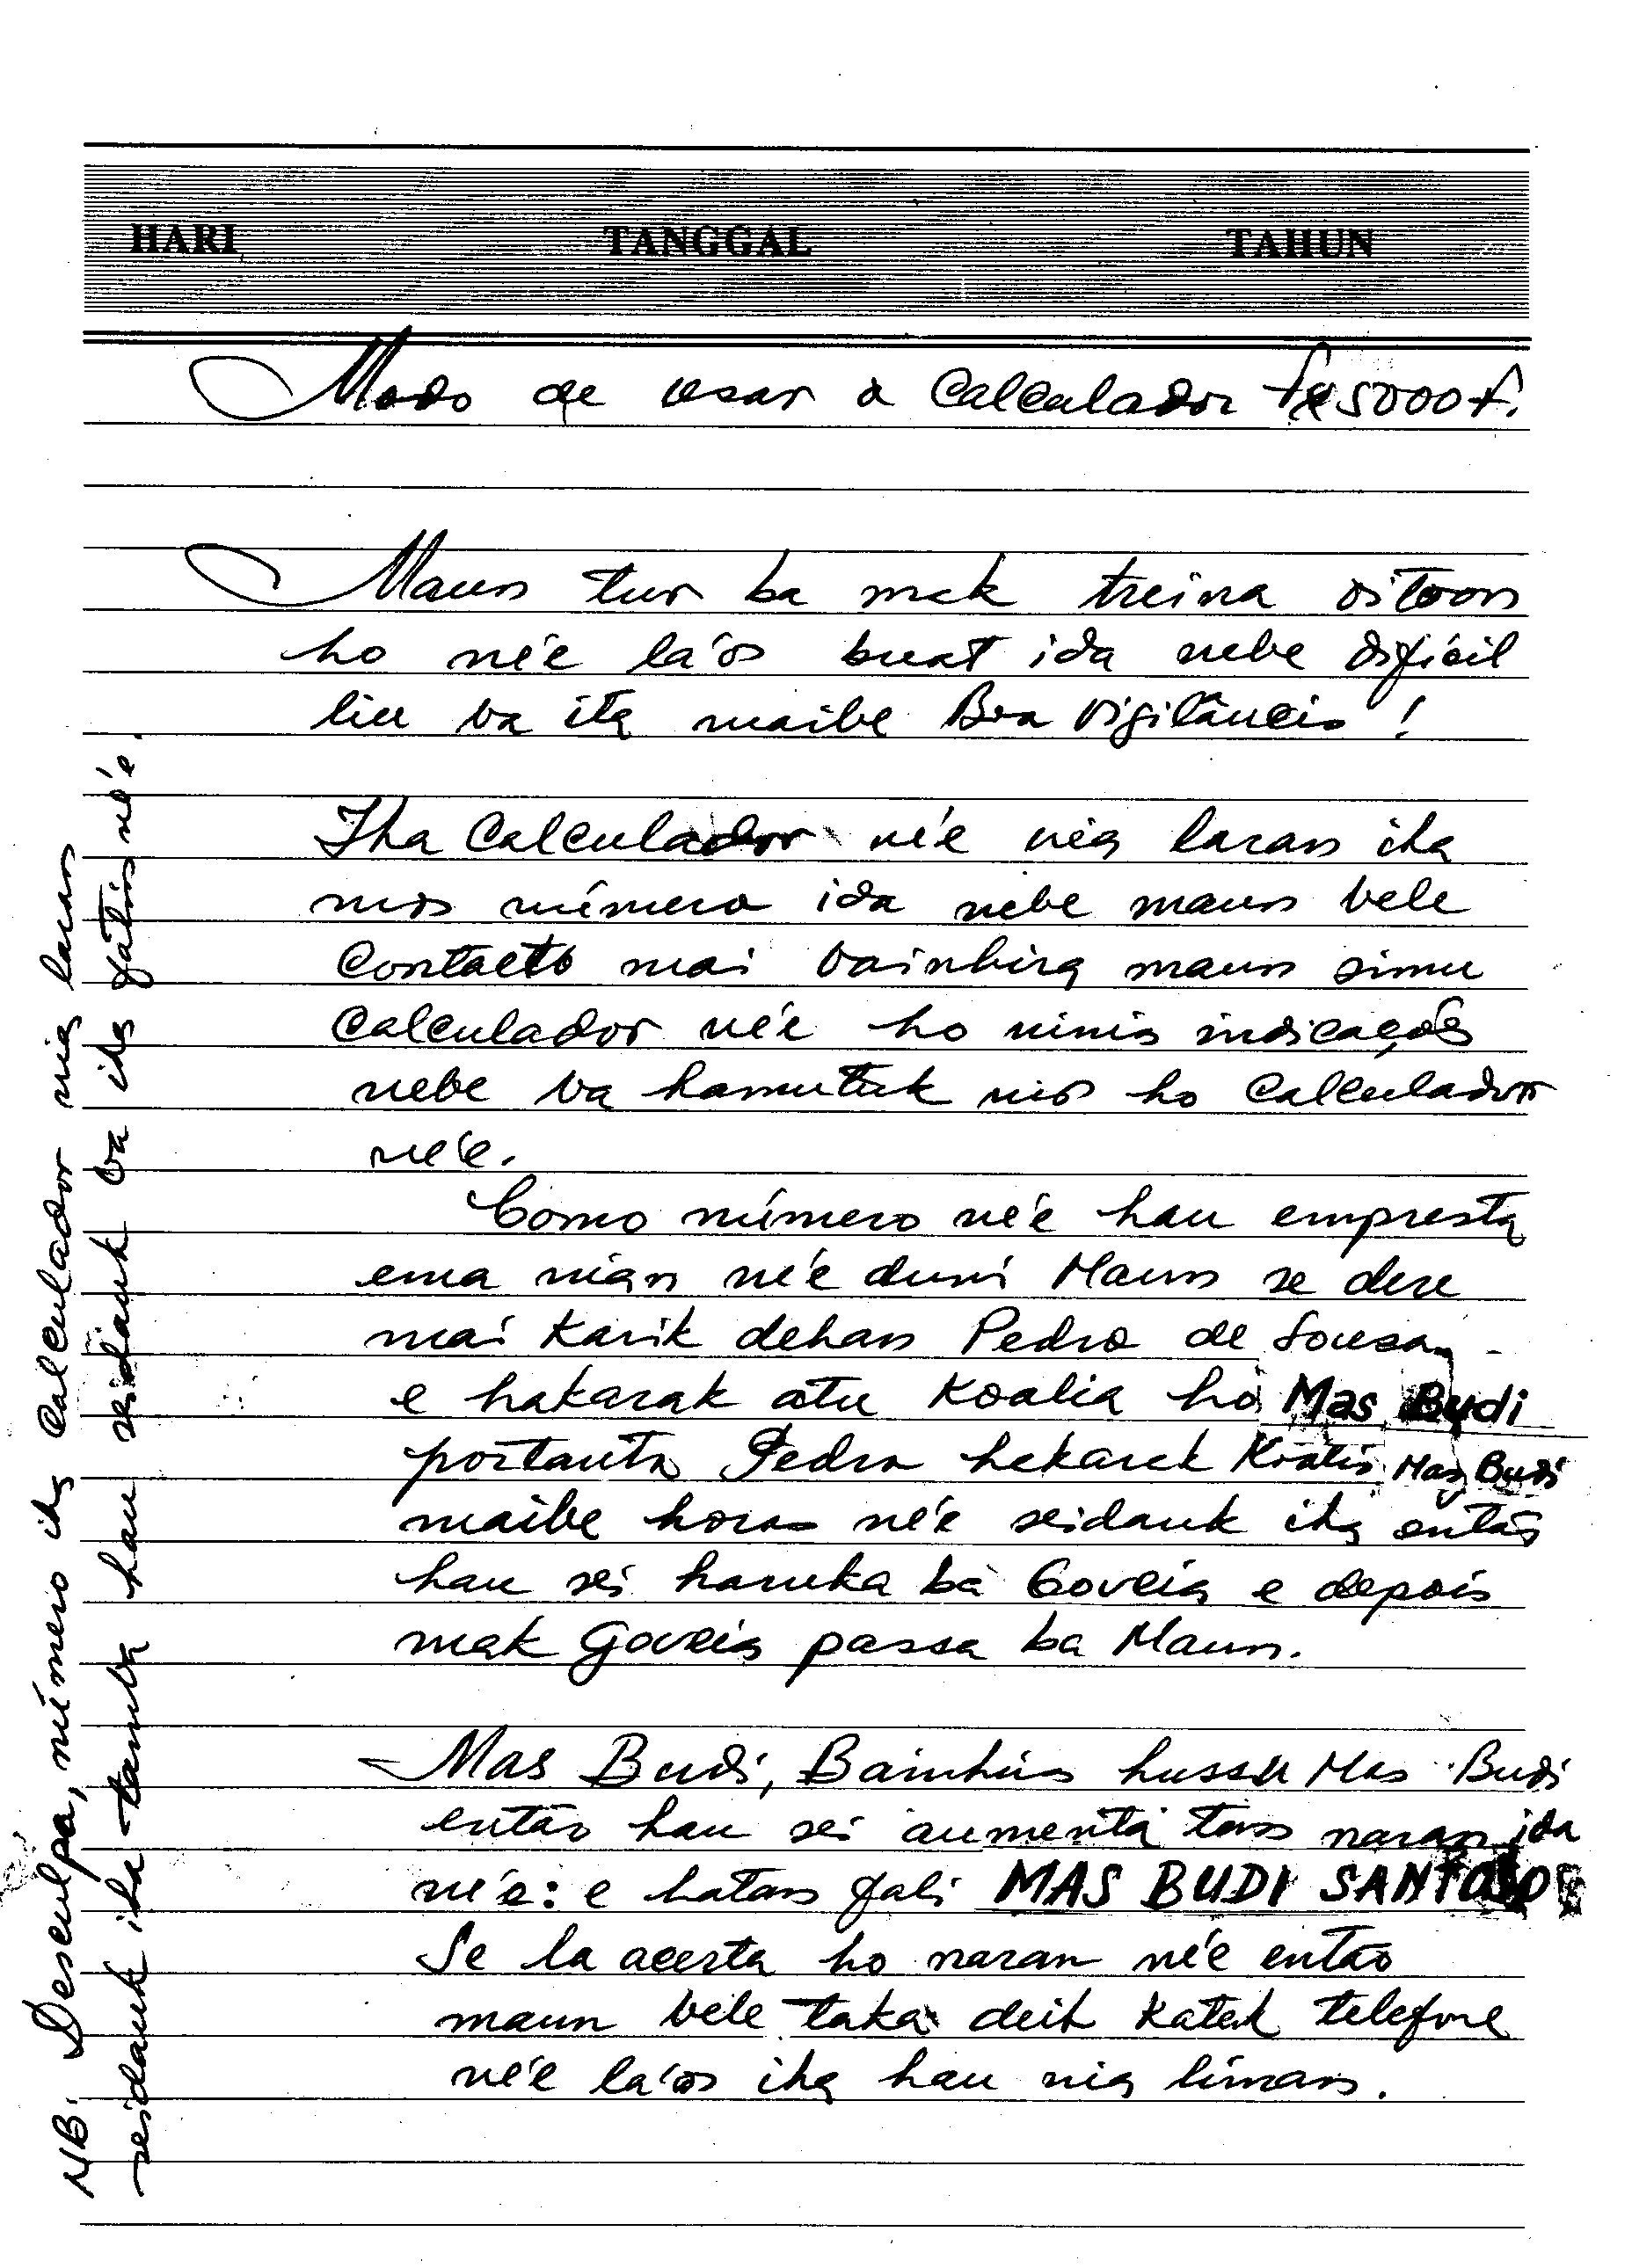 HARI TANGGAL TAHUN
Modo de usar a Calculador fx 5000 f.
Maun tur ba mak treina oitoan
ho né'e la'os buat ida nebe difícil
liu ba ita maibe Boa Vigilância !
Iha Calculador né'e nia laran iha
mos número ida nebe maun bele
Contacto mai bainhira maun simu
Calculador né'e ho ninia indicações
nebe ba hamutuk mos ho Calculador
né'e.
Como número né'e hau empresta
ema nian né'e duni Maun se dere
mai Karik dehan Pedro de Sousa
e hakarak atu Koalia ho Mas Budi
portanto Pedro hakarak Koalia Mas Budi
maibe horas né'e seidauk iha então
hau sei haruka ba Goveia e depois
mak Goveia passa ba Maun.
Mas Budi, Bainhira hussu Mas Budi
então hau sei aumenta tan naran ida
né'e: e hatan fali MAS BUDI SANTOSO
Se la acerta ho naran né'e então
maun bele taka deit Katak telefone
né'e la'os iha hau nia liman.
NB: Desculpa, número iha Calculador nia laran
seidauk iha tamba hau seidauk ba iha fatin né'e.